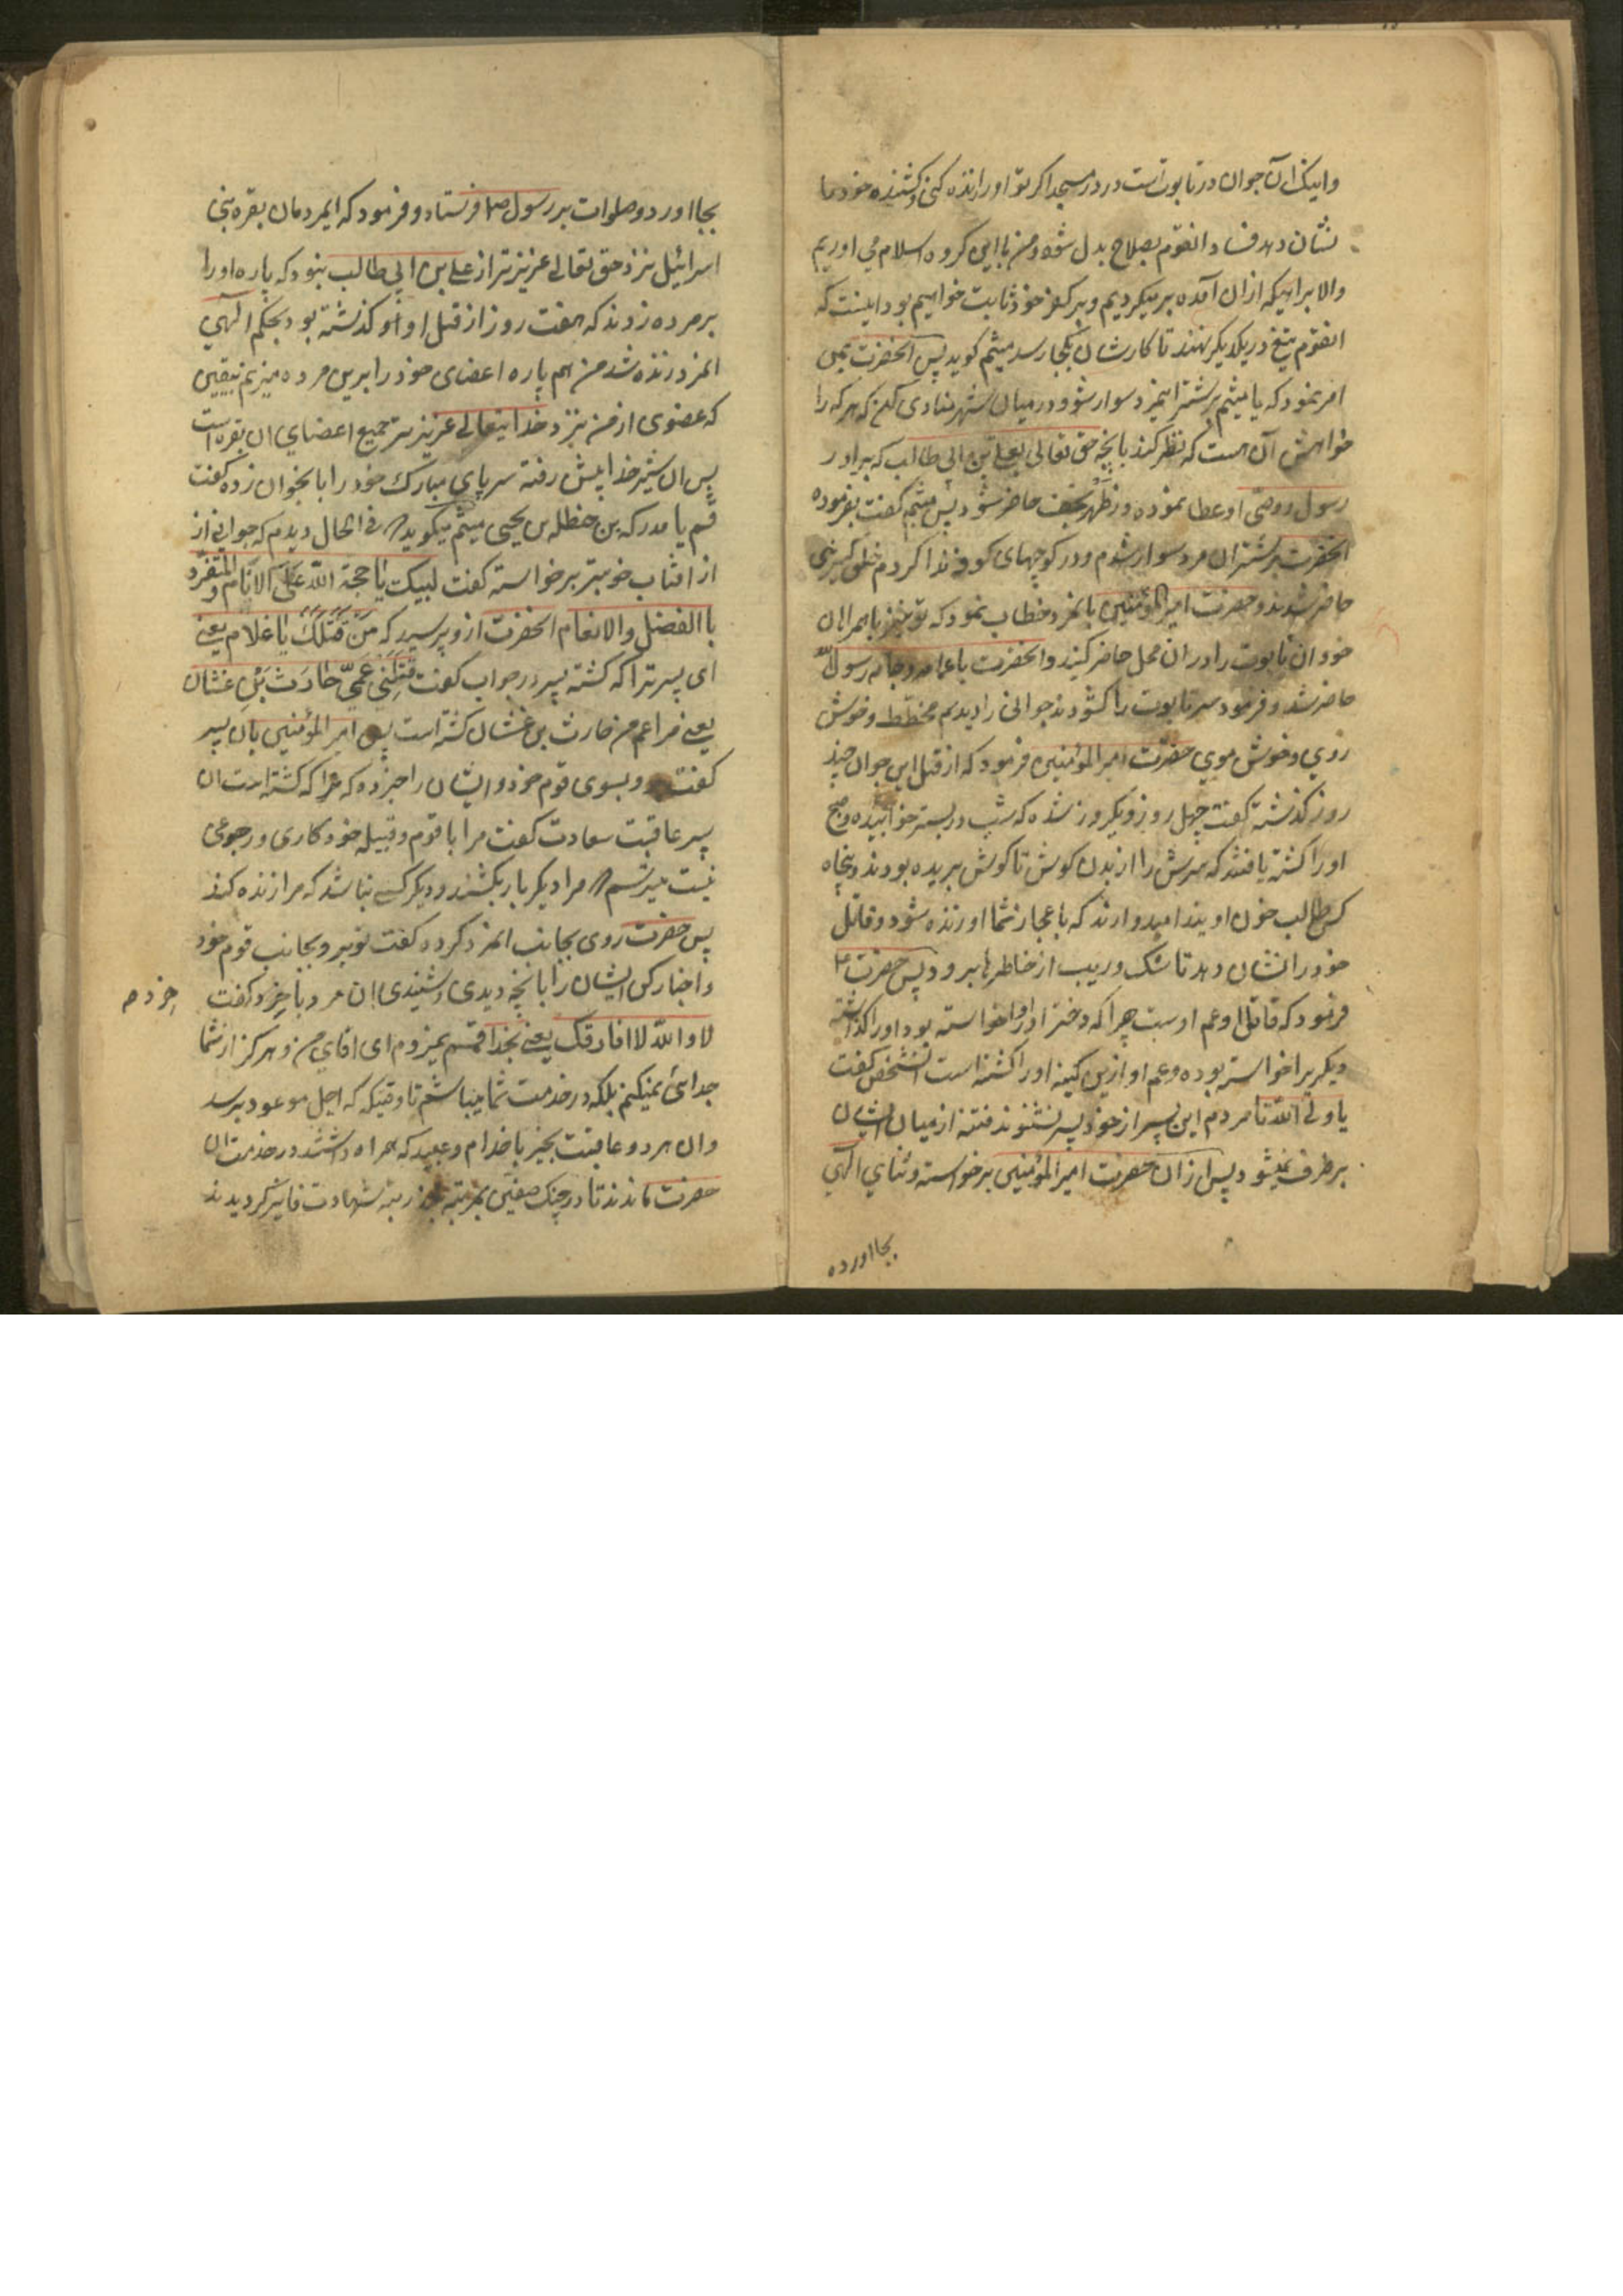 واینک ان جوان در تابوت است در در مسجد اکر تو اورا زنده کنی و کشنده خود را
نشان دهد فساد انقوم بصلاح بدل شود و من با این کروه اسلام می اوریم
والا براهیکه ازان آمده برمیکردیم و بر کفر خود ثابت خواهیم بود اینست که
انقوم تیغ در یکدیکر نهند تا کارشان بکجا رسد میثم کوید پس انحضرت بمن
امر نمود که یا میثم بر شتر اینمرد سوار شو و در میان شهر منادی کن که هر که را
خواهش آن هست که نظر کند بانچه حق تعالی بعلی بن ابی طالب که برادر
رسول و وصی او عطا نموده در ظهر نجف حاضر شود پس میثم کفت بفرموده
انحضرت بر شتر ان مرد سوار شدم و در کوچهای کوفه ندا کردم خلق کثیری
حاضر شدند و حضرت امیر المؤمنین بانمرد خطاب نمود که تو خیز با همراهان
خود ان تابوت را در ان محل حاضر کنید و انحضرت با عمامه و جامه رسول الله
حاضر شد و فرمود سر تابوت را کشودند جوانی را دیدیم مخطط و خوش
روی و خوش موی حضرت امیر المؤمنین فرمود که از قتل این جوان چند
روز کذشته کفت چهل روز و یکروز شده که شب در بستر خوابیده و صبح
اورا کشته یافتند که سرش را از بدن کوش تا کوش بریده بودند و پنجاه
کس طالب خون اویند امیدوارند که باعجاز شما او زنده شود و قاتل
خود را نشان دهد تا شک و ریب از خاطرها برود پس حضرت ع
فرمود که قاتل او عم اوست چرا که دختر اورا خواسته بود اورا کذاشته
دیکریرا خواسته بوده و عم او ازین کینه اورا کشته است انشخص کفت
یا ولی الله تا مردم این پسر از خود پسر نشنوند فتنه از میان ایشان
برطرف نمیشود پس ازان حضرت امیر المؤمنین برخواسته و ثنای الهی
بجا اورده
بجا اورد و صلوات بر رسول ص فرستاد و فرمود که ایمردمان بقره بنی
اسرائیل نزد حق تعالی عزیزتر از علی بن ابی طالب نبود که پاره اورا
بر مرده زدند که هفت روز از قتل او کذشته بود بحکم الهی
انمرد زنده شد من هم پاره اعضای خود را برین مرده میزنم بیقین
که عضوی از من نزد خدایتعالی عزیزتر جمیع اعضای ان بقره است
پس ان شیر خدا پیش رفته سر پای مبارک خود را بانجوان زده کفت
قم یا مدرکه بن حنظله بن یحیی میثم میکوید در فی الحال دیدم که جوانی از
از افتاب خوبتر برخواسته کفت لبیک یا حجة الله علی الانام و المتفرد
باالفضل والانعام انحضرت ازو پرسید که مَن قَتَلَكَ یا غلام یعنی
ای پسر ترا که کشته پسر در جواب کفت قتلنی عمّی حارث بن غشان
یعنی مرا عم من حارث بن غشان کشته است پس امیر المؤمنین بان پسر
کفت رو بسوی قوم خود و ایشان را خبر ده که مرا که کشته است ان
پسر عاقبت سعادت کفت مرا با قوم و قبیله خود کاری و رجوعی
نیست میترسم مرا دیکر بار بکشند و دیکر کسی نباشد که مرا زنده کند
پس حضرت روی بجانب انمرد کرده کفت تو برو بجانب قوم خود
واخبار کن ایشان را بانچه دیدی و شنیدی ان مرد با خرد کفت
لا والله لا افارقک یعنی بخدا قسم نمیروم ای اقای من و هرکز از شما
جدائی نمیکنم بلکه در خدمت شما میباشم تا وقتیکه که اجل موعود برسد
وان هر دو عاقبت بخیر با خدام و عبید که همراه داشتند در خدمت ان
حضرت ماندند تا در جنک صفین بمرتبه شهادت فایز کردیدند